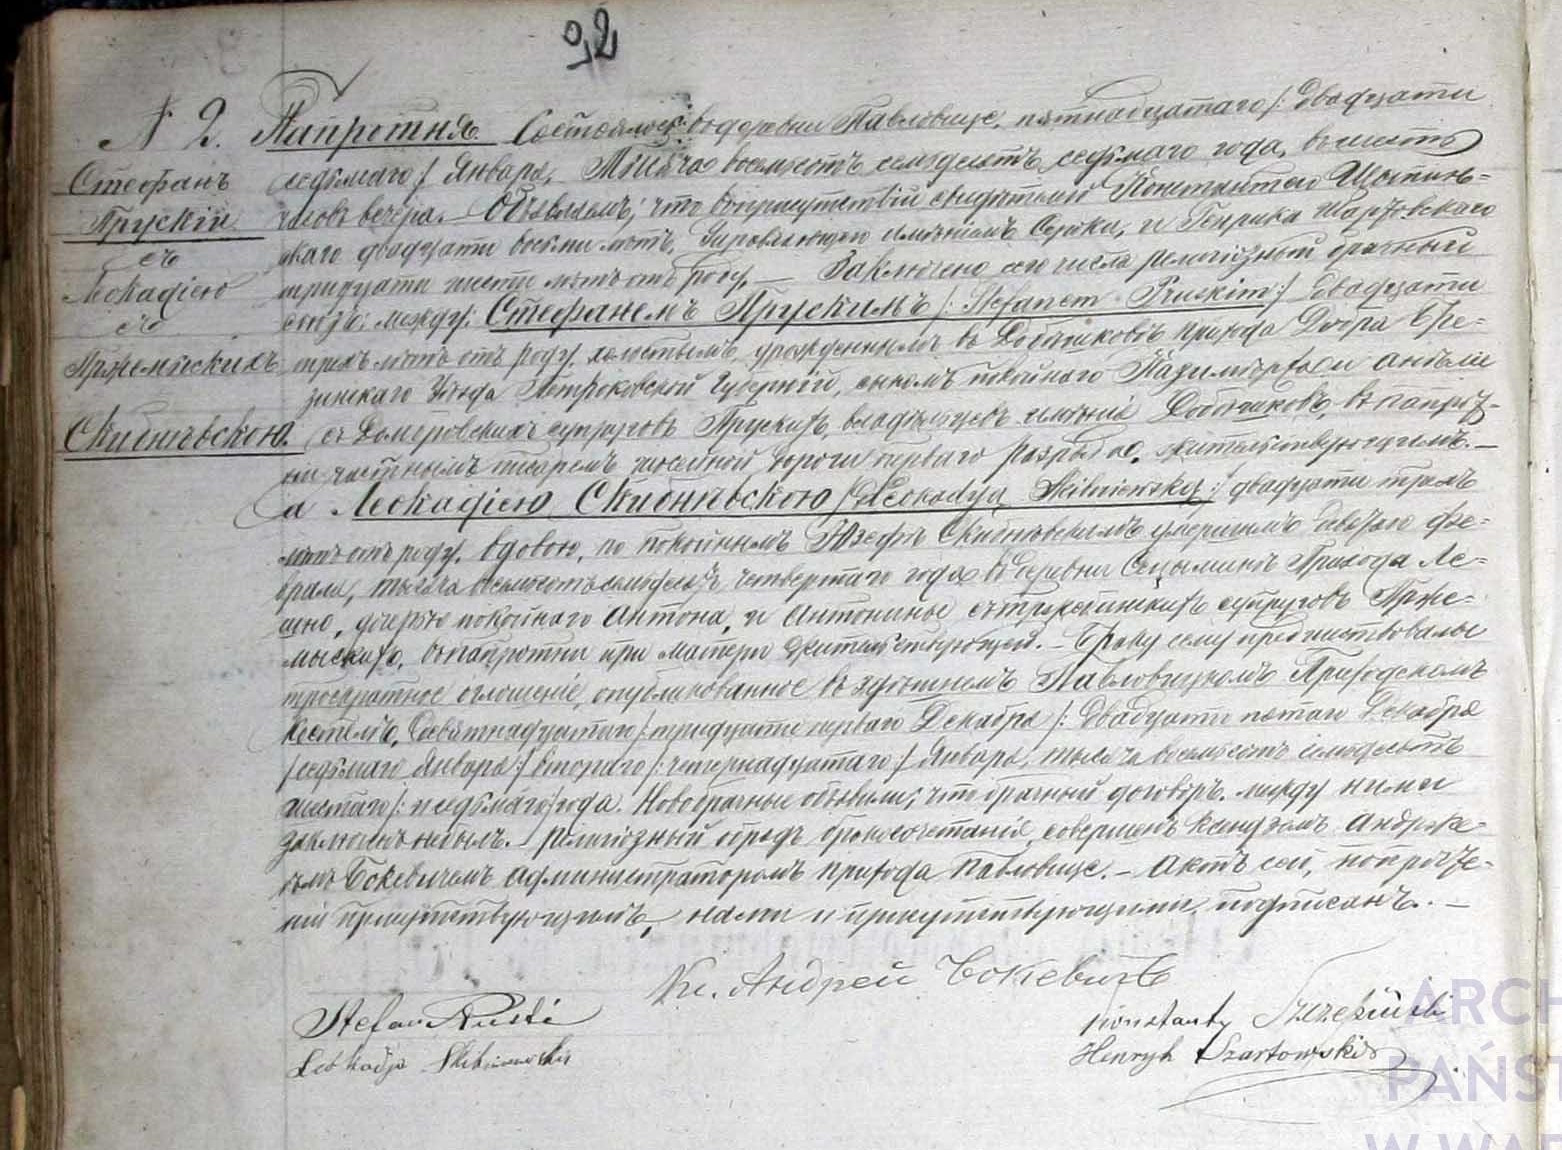 92
№ 2. Папротня. Состоялось въ деревни Павловице, пятнадцатаго /: двадцати
Стефанъ
Прускій
съ
Леокадіею
съ
Пржемыскихъ
Скибнѣвскою.
седьмаго :/ Января, Тысяча восемьсотъ семьдесятъ седьмаго года, въ шесть
часовъ вечера. – Объявляемъ, что въ присутствіи свидѣтелей Константего
каго двадцати восьми лѣтъ, и Генрика Шартовскаго
тридцати шести лѣтъ отъ роду, – Заключено сего числа религіозный брачный
союзъ между: Стефанемъ Прускимъ /: Stefanem Pruskim :/ двадцати
трехъ лѣтъ отъ роду, холостымъ, урожденнымъ въ прихода Бре-
зинскаго Уѣзда Петроковской Губерніи, сыномъ покойнаго Казимѣржа и Анѣли
съ супруговъ Прускихъ, владѣльцевъ имѣнія въ Папрот-
ни частнымъ писаремъ дороги перваго разряда, жительствующимъ. –
а Леокадіею Скибнѣвскою /: Leokadyą Skibniewską :/ двадцати трехъ
лѣтъ отъ роду, вдовою, по покойнымъ Юзефѣ Скибнѣвскимъ умершимъ фе-
враля, тысяча восемьсотъ семьдесятъ четвертаго года въ деревни Прихода Ле-
шно, дочерью покойнаго Антона, и Антонины супруговъ Прже-
мыскихъ, въ Папротни при матери жительствующей. – Браку сему предшествовали
троекратное оглашеніе, опубликованное въ здѣшнемъ Павловицкомъ Приходскомъ
Костелѣ, девятнадцатаго /: тридцати перваго Декабря /: двадцати пятаго Декабря
/: седьмаго Января :/ втораго /: четернадцатаго :/ Января, тысяча восемьсотъ семьдесятъ
шестаго /: и седьмаго :/ года. Новобрачные объявили, что брачный договоръ между ними
заключенъ небылъ. – Религіозный обрядъ бракосочетанія, совершенъ Ксендзомъ Андрже-
емъ Бокевичемъ Администраторомъ прихода Павловице. – Актъ сей, по прочте-
ніи присутствующимъ, нами и присутствующими подписанъ. –
Кс. Андрей Бокевичъ
Stefan Pruski
Leokadja Skibniewska
Konstanty
Henryk Szartowski
ARCH
PAŃST
W WAR